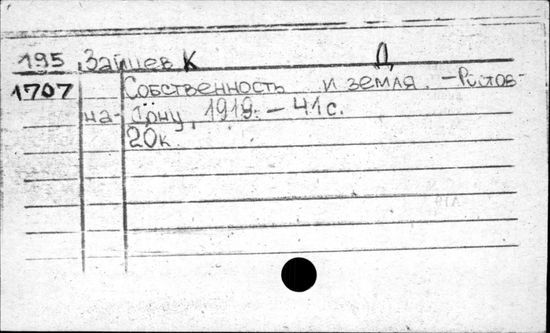 195 Зайцев К Д
1707 Собственность и земля. - Ростов-
на-Дону, 1919. - 41 с.
20к.